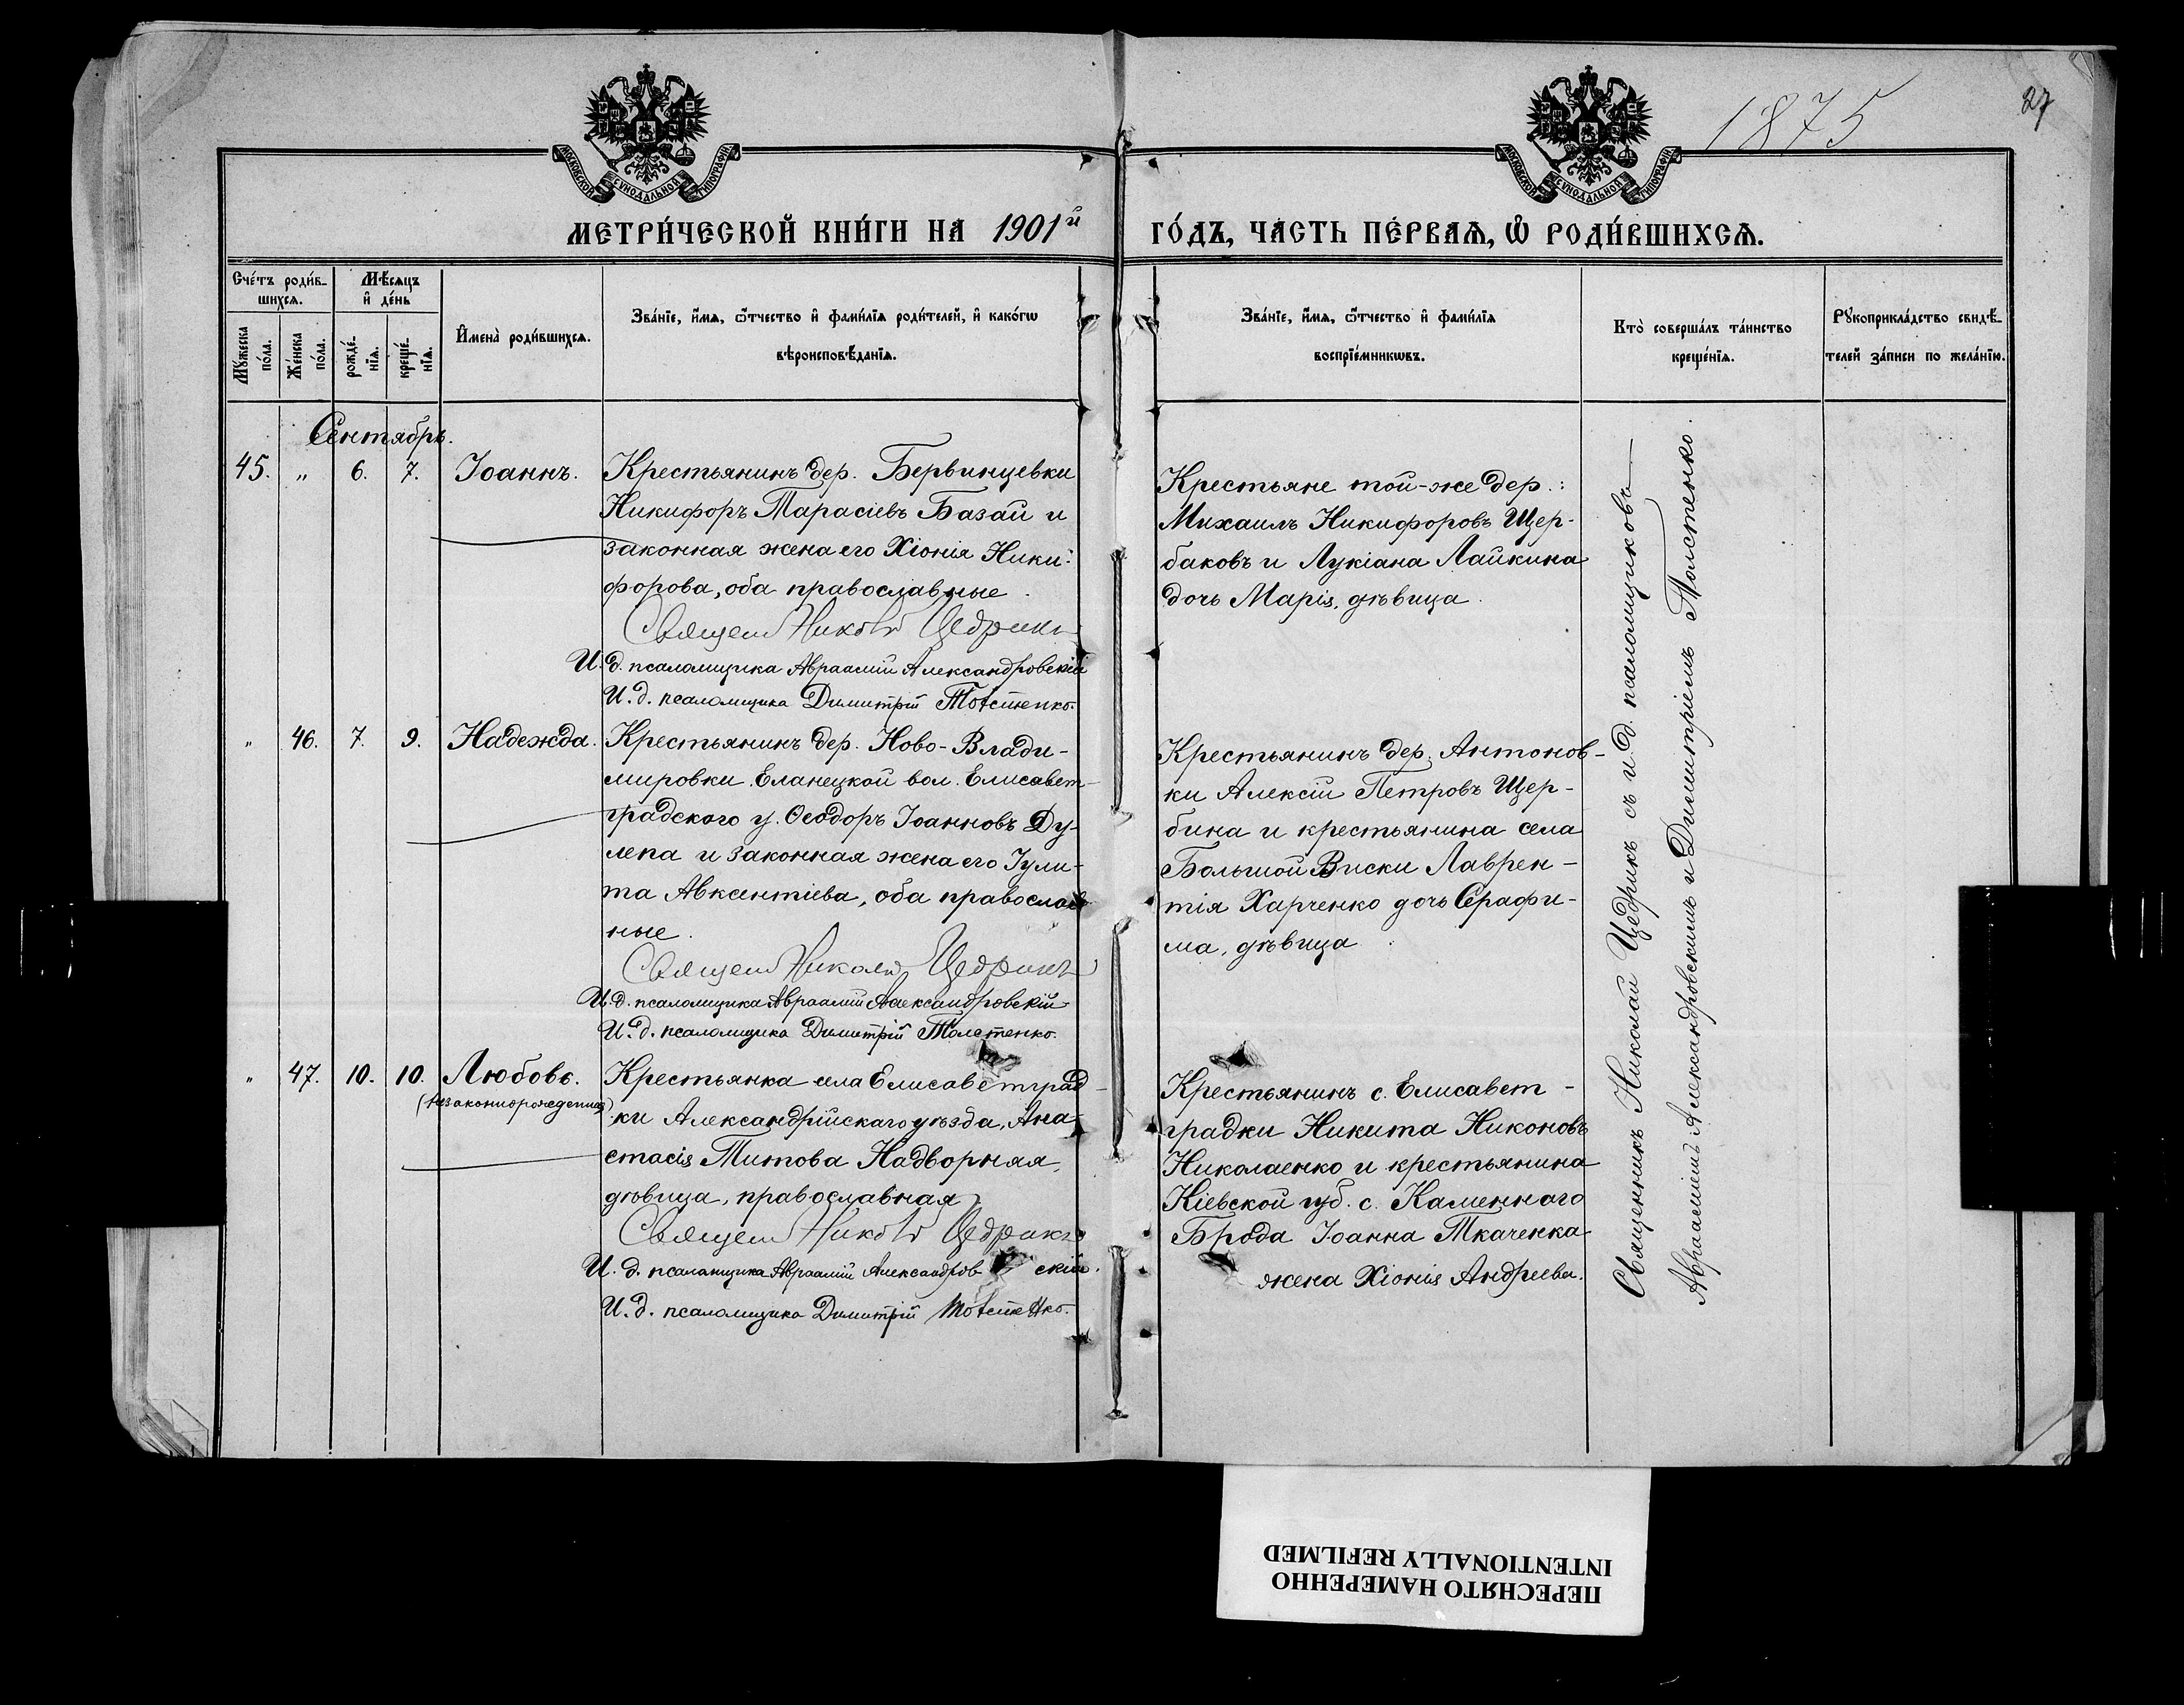 1875
27
МОСКОВСКОЙ СѴНОДАЛЬНОЙ ТИПОГРАФІИ
МОСКОВСКОЙ СѴНОДАЛЬНОЙ ТИПОГРАФІИ
МЕТРИ́ЧЕСКОЙ КНИ́ГИ НА 1901й ГО́ДЪ, ЧА́СТЬ ПЕ́РВАѦ, Ѽ РОДИ́ВШИХСѦ.
Сче́тъ роди́в-
шихсѧ.
Мꙋ́жеска
по́ла.
Же́нска
по́ла.
Мѣ́сѧцъ
и҆ де́нь
рожде́-
нїѧ.
креще́-
нїѧ.
И҆мена̀ роди́вшихсѧ.
Зва́нїе, и҆́мѧ, ѻ҆́тчество и҆ фами́лїѧ роди́телей, и҆ како́гѡ
вѣроисповѣ́данїѧ.
Зва́нїе, и҆́мѧ, ѻ҆́тчество и҆ фами́лїѧ
воспрїе́мникѡвъ.
Кто̀ соверша́лъ та́инство
креще́нїѧ.
Рꙋкоприкла́дство свидѣ́-
телей за́писи по жела́нїю.
Сентябрь.
45. " 6. 7. Іоаннъ.
Крестьянинъ дер. Бервинцевки
Никифоръ Тарасіевъ Базай и
законная жена его Хіонія Ники-
форова, оба православные.
Священ Николай Цедрикъ
И. д. псаломщика Авраамій Александровскій
И. д. псаломщика Димитрій Толстенко.
Крестьяне той-же дер.:
Михаилъ Никифоровъ Щер-
баковъ и Лукіана Лайкина
дочь Марія, дѣвица.
" 46. 7. 9. Надежда.
Крестьянинъ дер. Ново-Влади-
мировки Еланецкой вол. Елисавет-
градского у. Ѳеодоръ Іоанновъ Ду-
лепа и законная жена его Іули-
та Авксентіева, оба православ
ные.
Священ Николай Цедрикъ
И. д. псаломщика Авраамій Александровскій
И. д. псаломщика Димитрій Толстенко.
Крестьянинъ дер. Антонов-
ки Алексій Петровъ Щер-
бина и крестьянина села
Большой Виски Лаврен-
тія Харченко дочь Серафи-
ма, дѣвица.
" 47. 10. 10. Любовь.
(незаконнорожденная)
Крестьянка села Елисаветград-
ки Александрійскаго уѣзда, Ана-
стасія Титова Надворняя,
дѣвица, православная
Священ Николай Цедрикъ
И. д. псаломщика Авраамій Александровскій.
И. д. псаломщика Димитрій Толстенко.
Крестьянинъ с. Елисавет-
градки Никита Никоновъ
Николаенко и крестьянина
Кіевской губ. с. Каменнаго
Брода Іоанна Ткаченка
жена Хіонія Андреева.
Священникъ Николай Цедрикъ съ и. д. псаломщиковъ
Авраамiемъ Александровскимъ и Димитріемъ Толстенко.
ПЕРЕСНЯТО НАМЕРЕННО
INTENTIONALLY REFILMED